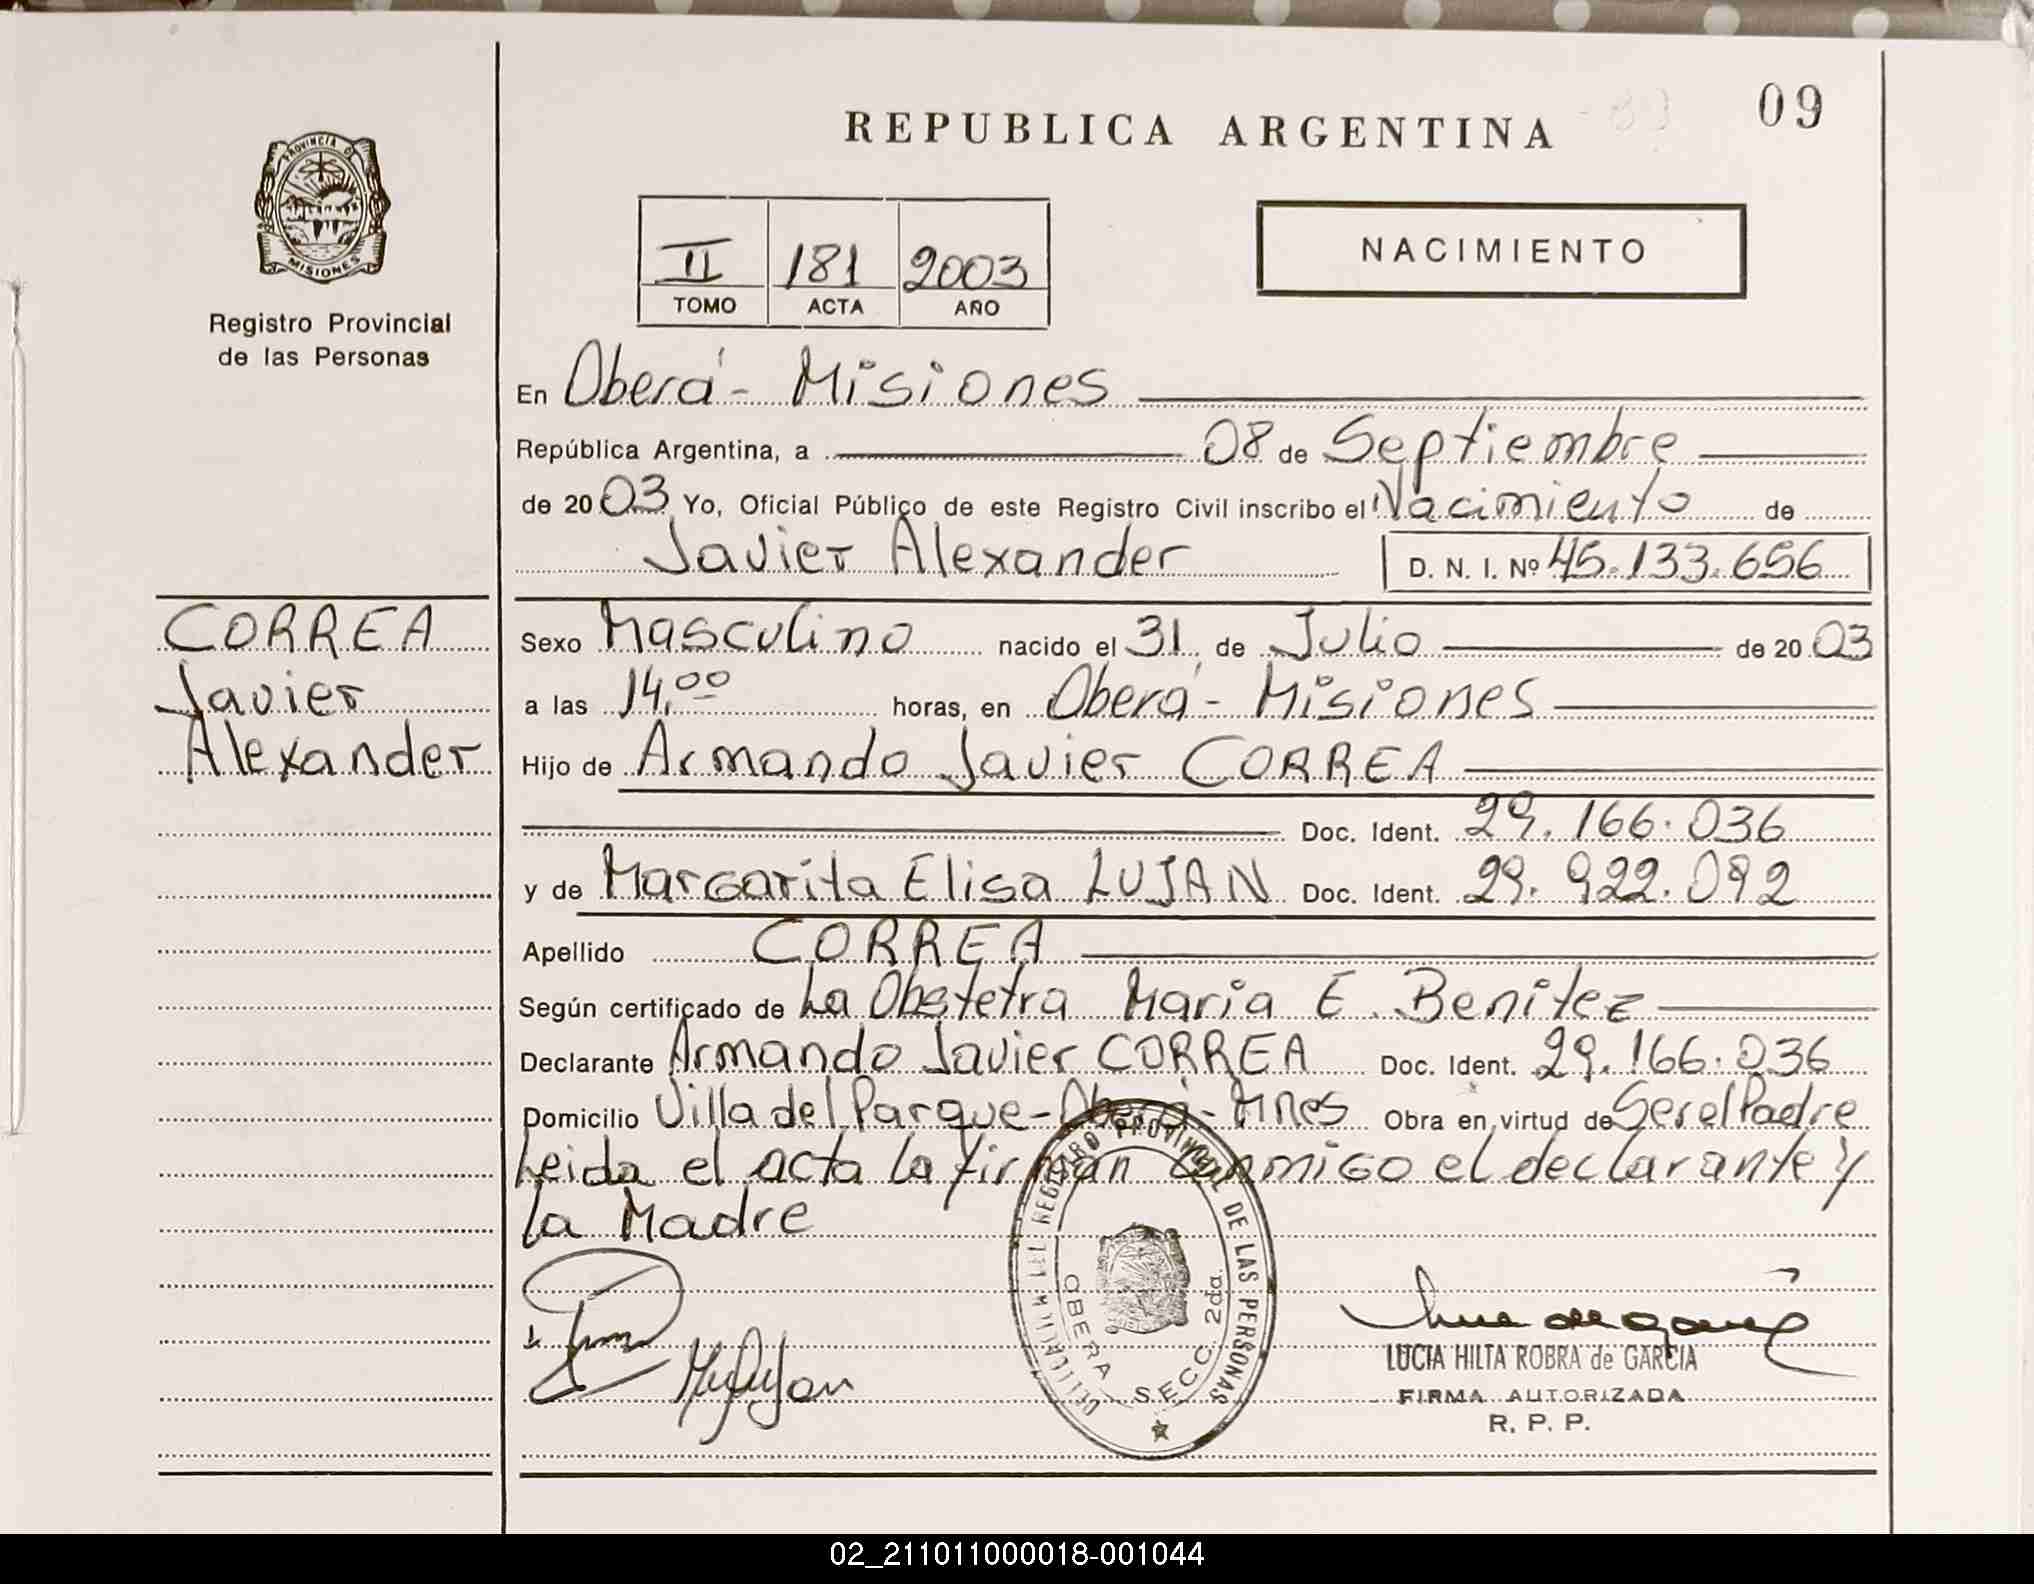 REPUBLICA ARGENTINA
09
PROVINCIA D
MISIONES
Registro Provincial
de las Personas
II 181 2003
TOMO ACTA AÑO
NACIMIENTO
En Oberá - Misiones
República Argentina, a 08 de Septiembre
de 2003 Yo, Oficial Público de este Registro Civil inscribo el Nacimiento de
Javier Alexander D. N. I. Nº 45.133.656
CORREA
Javier
Alexander
Sexo Masculino nacido el 31 de Julio de 2003
a las 14,00 horas, en Oberá - Misiones
Hijo de Armando Javier CORREA
Doc. Ident. 29.166.036
y de Margarita Elisa LUJAN Doc. Ident. 29.922.092
Apellido CORREA
Según certificado de La Obstetra Maria E. Benitez
Declarante Armando Javier CORREA Doc. Ident. 29.166.036
Domicilio Villa del Parque - Oberá - Mnes Obra en virtud de Ser el Padre
Leida el acta la firman conmigo el declarante y
la Madre
DELEGACION DEL REGISTRO PROVINCIAL DE LAS PERSONAS
OBERA SECC. 2da.
LUCIA HILTA ROBRA de GARCIA
FIRMA AUTORIZADA
R. P. P.
02_211011000018-001044